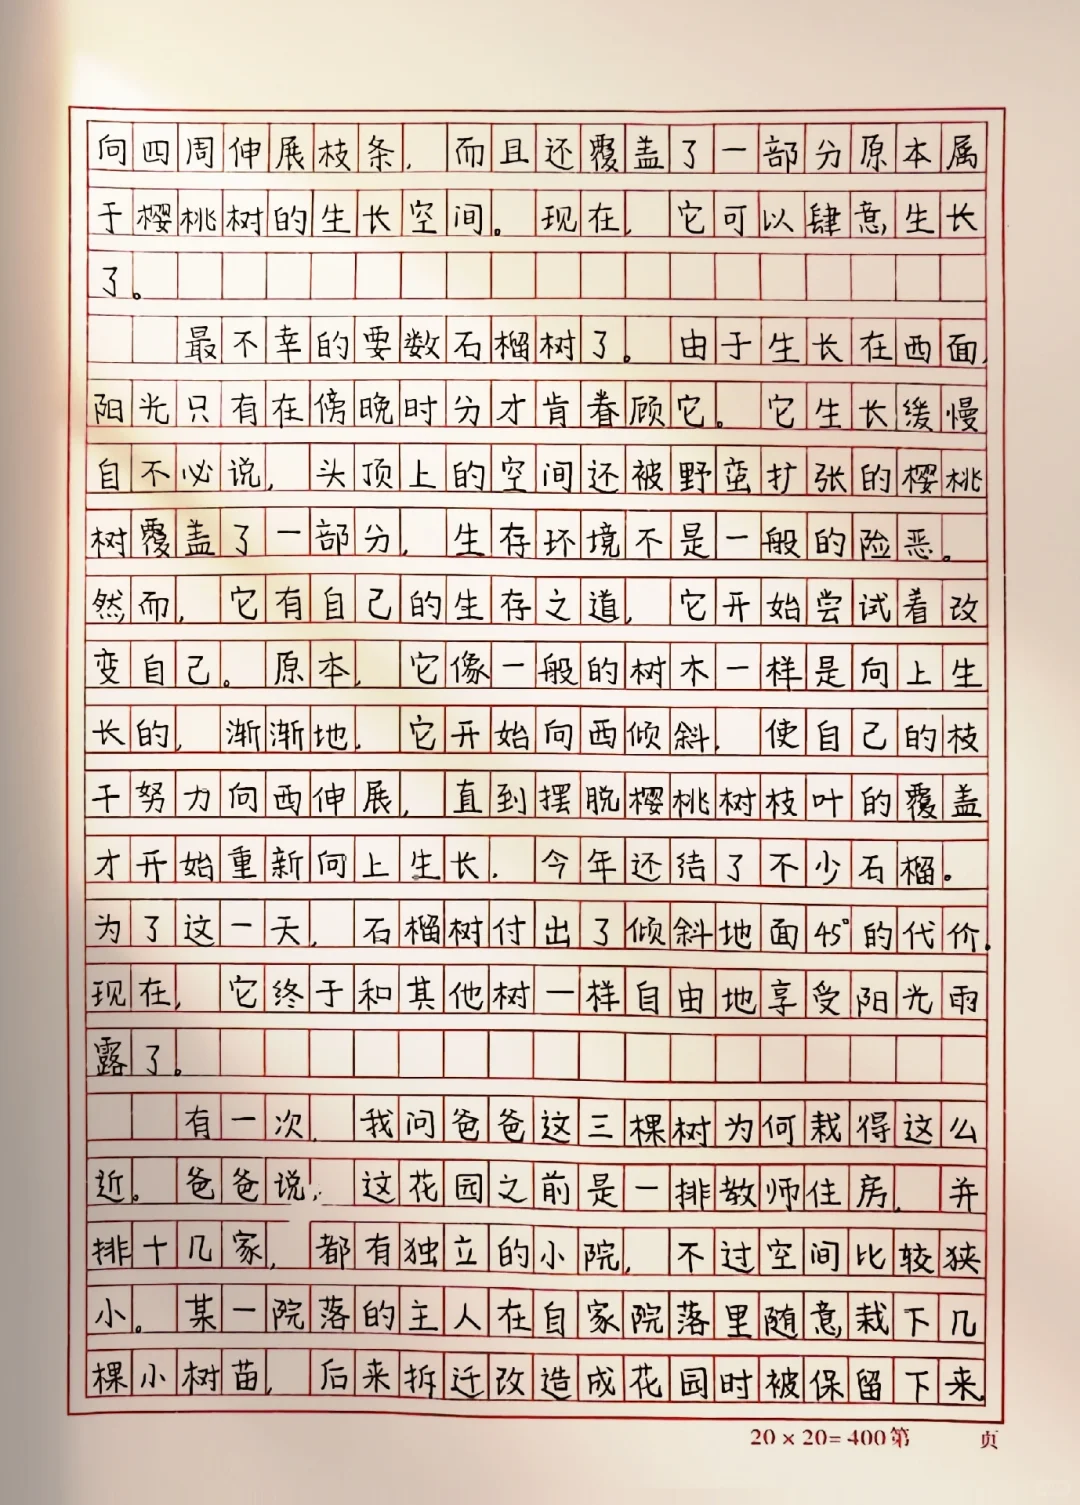 向四周伸展枝条，而且还覆盖了一部分原本属
于樱桃树的生长空间。现在，它可以肆意生长
了。
最不幸的要数石榴树了。由于生长在西面，
阳光只有在傍晚时分才肯眷顾它。它生长缓慢
自不必说，头顶上的空间还被野蛮扩张的樱桃
树覆盖了一部分，生存环境不是一般的险恶。
然而，它有自己的生存之道，它开始尝试着改
变自己。原本，它像一般的树木一样是向上生
长的，渐渐地，它开始向西倾斜，使自己的枝
干努力向西伸展，直到摆脱樱桃树枝叶的覆盖
才开始重新向上生长．今年还结了不少石榴。
为了这一天，石榴树付出了倾斜地面45°的代价．
现在，它终于和其他树一样自由地享受阳光雨
露了。
有一次，我问爸爸这三棵树为何栽得这么
近。爸爸说，这花园之前是一排教师住房，并
排十几家，都有独立的小院，不过空间比较狭
小。某一院落的主人在自家院落里随意栽下几
棵小树苗，后来拆迁改造成花园时被保留下来
20×20=400第 页